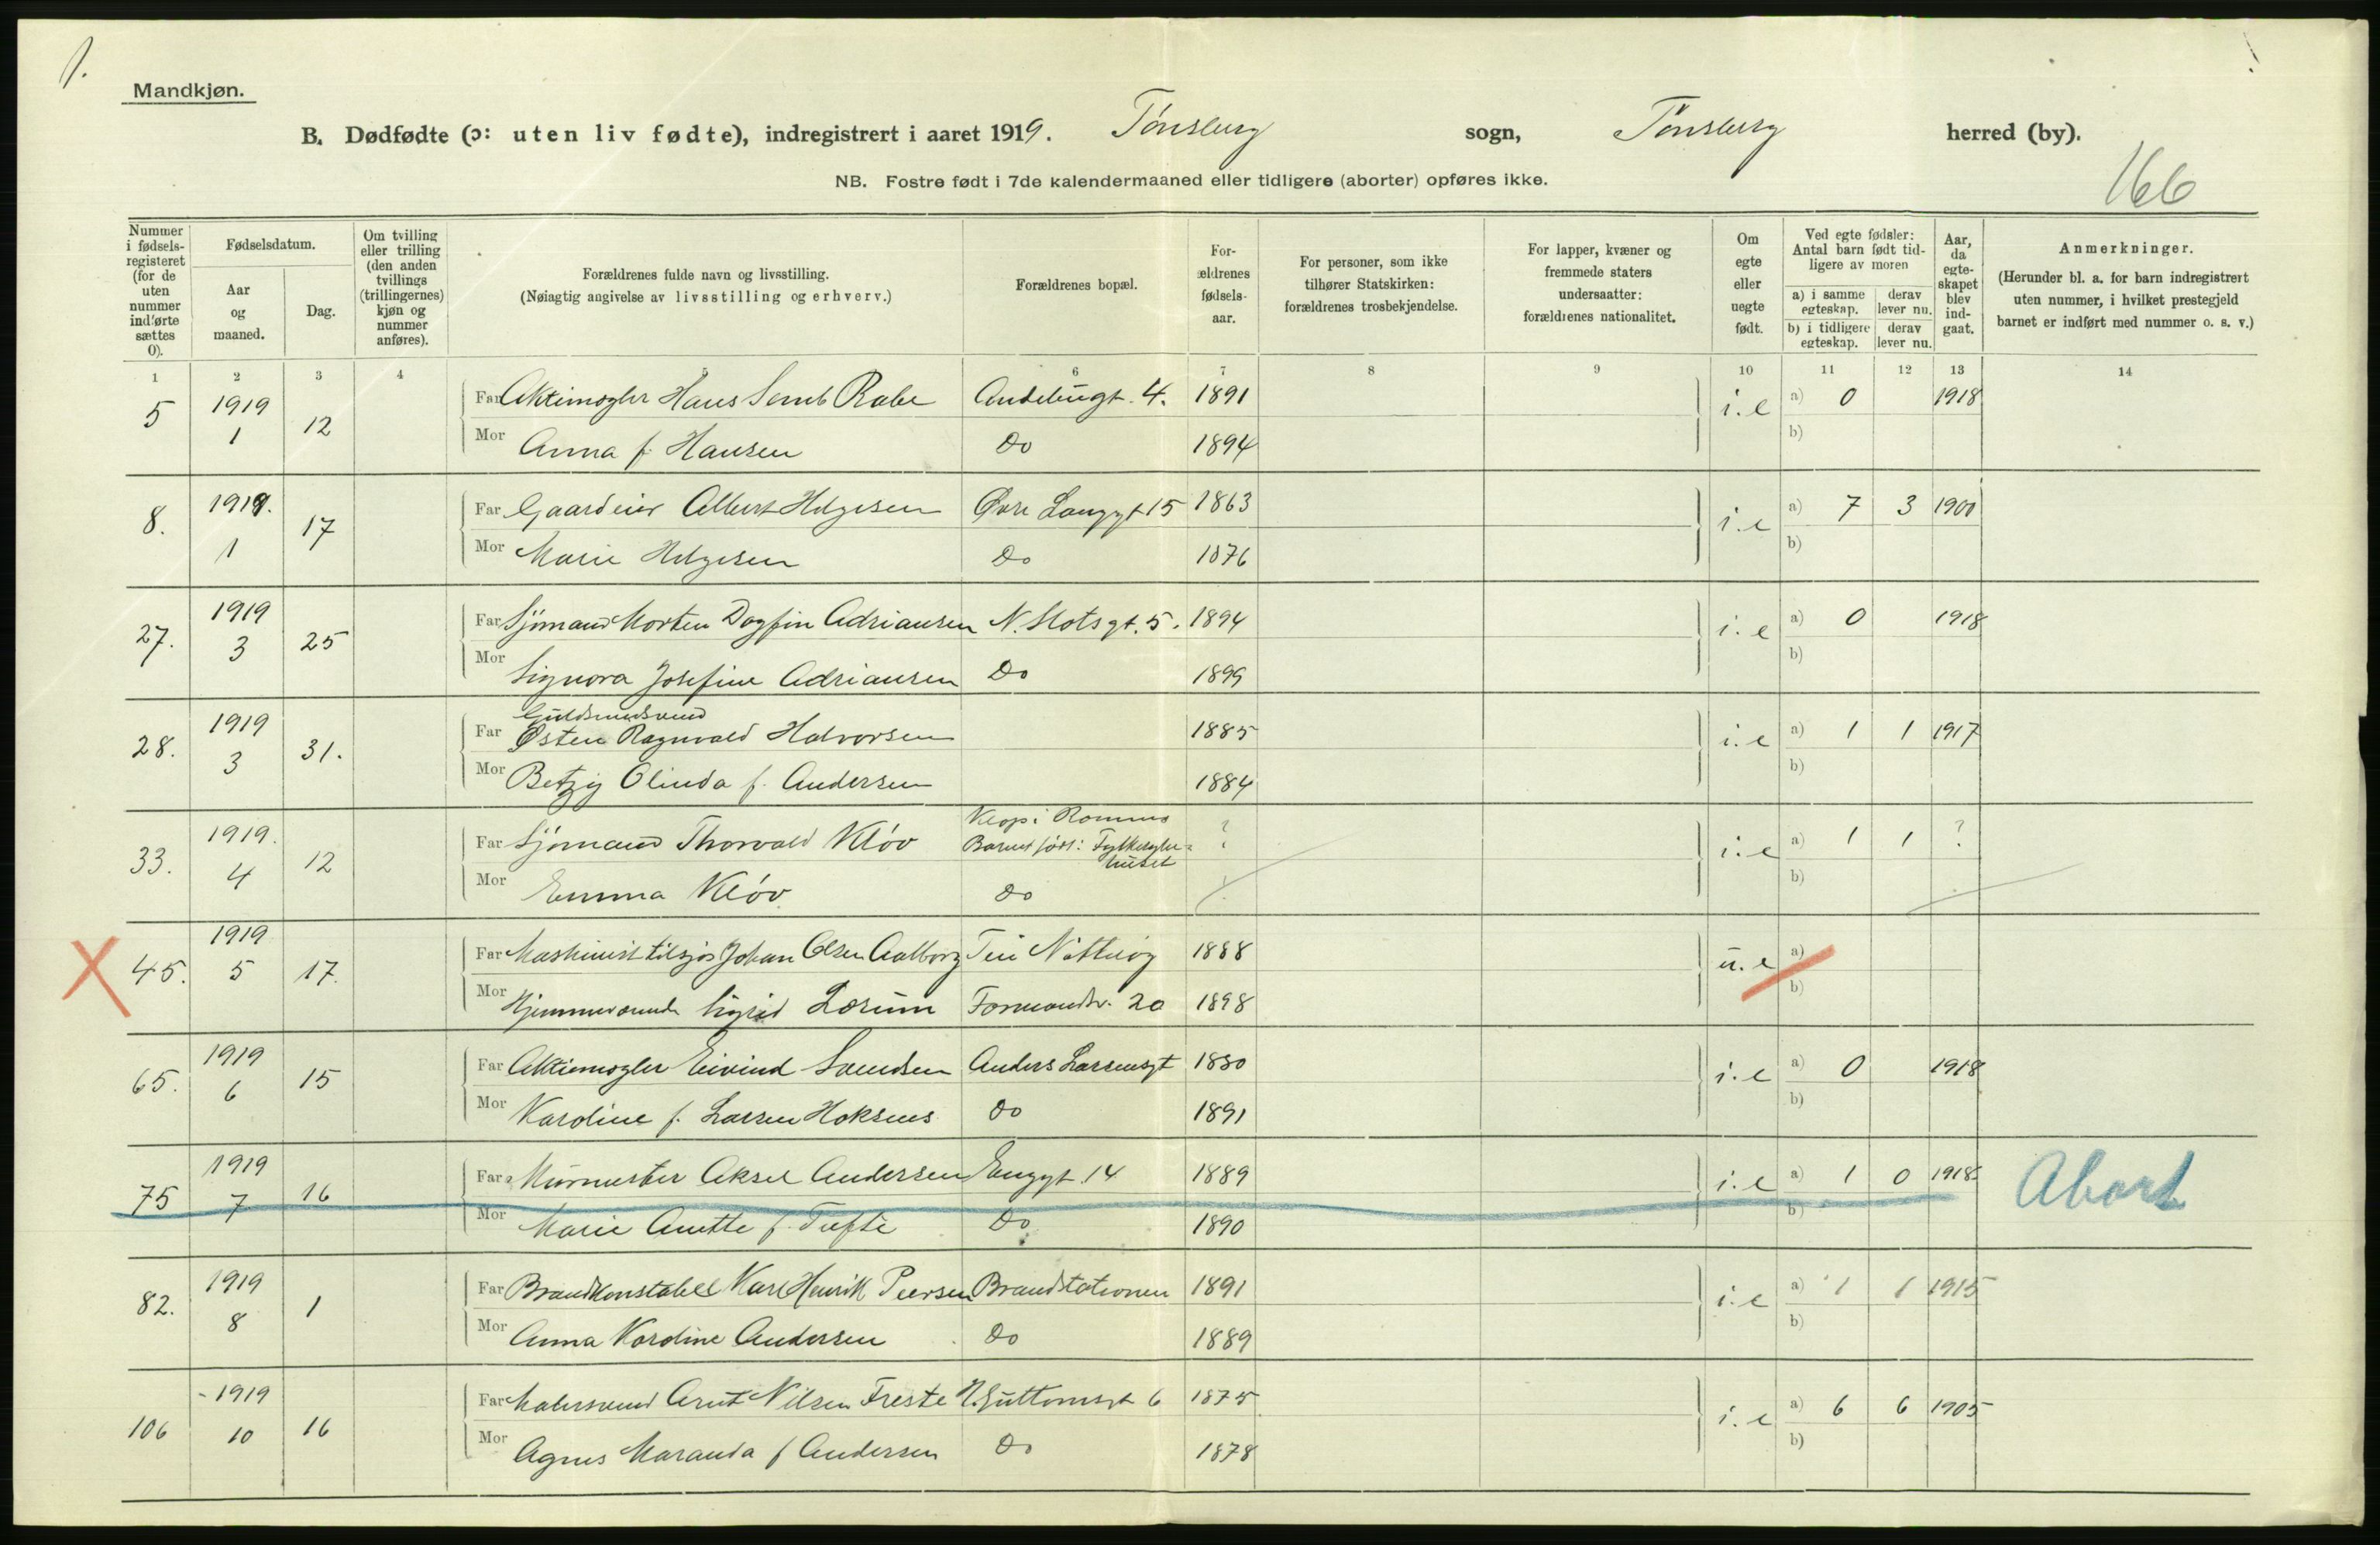 1.
Mandkjøn.
B. Dødfødte (ɔ: uten liv fødte), indregistrert i aaret 1919. Tønsberg sogn, Tønsberg herred (by).
NB. Fostre født i 7de kalendermaaned eller tidligere (aborter) opføres ikke.
166
Nummer i fødsels-registeret (for de uten nummer indførte sættes 0).
Fødselsdatum.
Aar og maaned.
Dag.
Om tvilling eller trilling (den anden tvillings (trillingernes) kjøn og nummer anføres).
Forældrenes fulde navn og livsstilling.
(Nøiagtig angivelse av livsstilling og erhverv.)
Forældrenes bopæl.
For-ældrenes fødsels-aar.
For personer, som ikke tilhører Statskirken: forældrenes trosbekjendelse.
For lapper, kvæner og fremmede staters undersaatter: forældrenes nationalitet.
Om egte eller uegte født.
Ved egte fødsler: Antal barn født tid-ligere av moren
a) i samme egteskap. derav lever nu.
b) i tidligere egteskap. derav lever nu.
Aar, da egte-skapet blev ind-gaat.
Anmerkninger.
(Herunder bl. a. for barn indregistrert uten nummer, i hvilket prestegjeld barnet er indført med nummer o. s. v.)
1 2 3 4 6 7 8 9 10 11 12 13 14
5 1919 1 12 Far Aktiemægler Hans Semb Rabe Andebugt. 4. 1891 i. e a) 0 1918
Mor Anna f. Hansen Do 1894 b)
8. 1919. 1 17 Far Gaardeier Albert Helgesen Øvre Langgt 15 1863 i. e a) 7 3 1900
Mor Marie Helgesen Do 1876 b)
27. 1919 3 25 Far Sjømand Morten Dagfin Adriansen N. Slotsgt. 5. 1894 i. e a) 0 1918
Mor Signora Josefine Adriansen Do 1899 b)
Guldsmedsvend
28. 1919 3 31. Far Østen Ragnvald Halvorsen 1885 i. e a) 1 1 1917
Mor Betzy Olinda f. Andersen 1884 b)
Kløp i Ramnes
33. 1919. 4 12 Far Sjømand Thorvald Kløv Barnet født: Fylkesyke= ? i. e a) 1 1 ?
huset
Mor Emma Kløv Do b)
45. 1919 5 17. Far Maskinist tilsjøs Johan Olsen Aalborg 1888 u. e a)
Mor Hjemmeværende Sigrid Lorum Formandsv. 20 1898 b)
65. 1919 6 15 Far Aktiemægler Eivind Svendsen Anders Larsensgt 1880 i. e a) 0 1918
Mor Karoline f. Larsen Do 1891 b)
75 1919 7 16 Far Murmester Aksel Andersen Enggt. 14 1889 i. e a) 1 0 1918 Abort
Mor Marie Anette f. Tufte Do 1890 b)
82. 1919 8 1 Far Brandkonstabel Karl Henrik Peersen Brandstationen 1891 i. e a) 1 1 1915
Mor Anna Karoline Andersen Do 1889 b)
106 1919 10 16 Far Malersvend Arnt Nilsen Freste N. Guttormsgt 6 1875 i. e a) 6 6 1905
Mor Agnes Maranda f Andersen Do 1878 b)